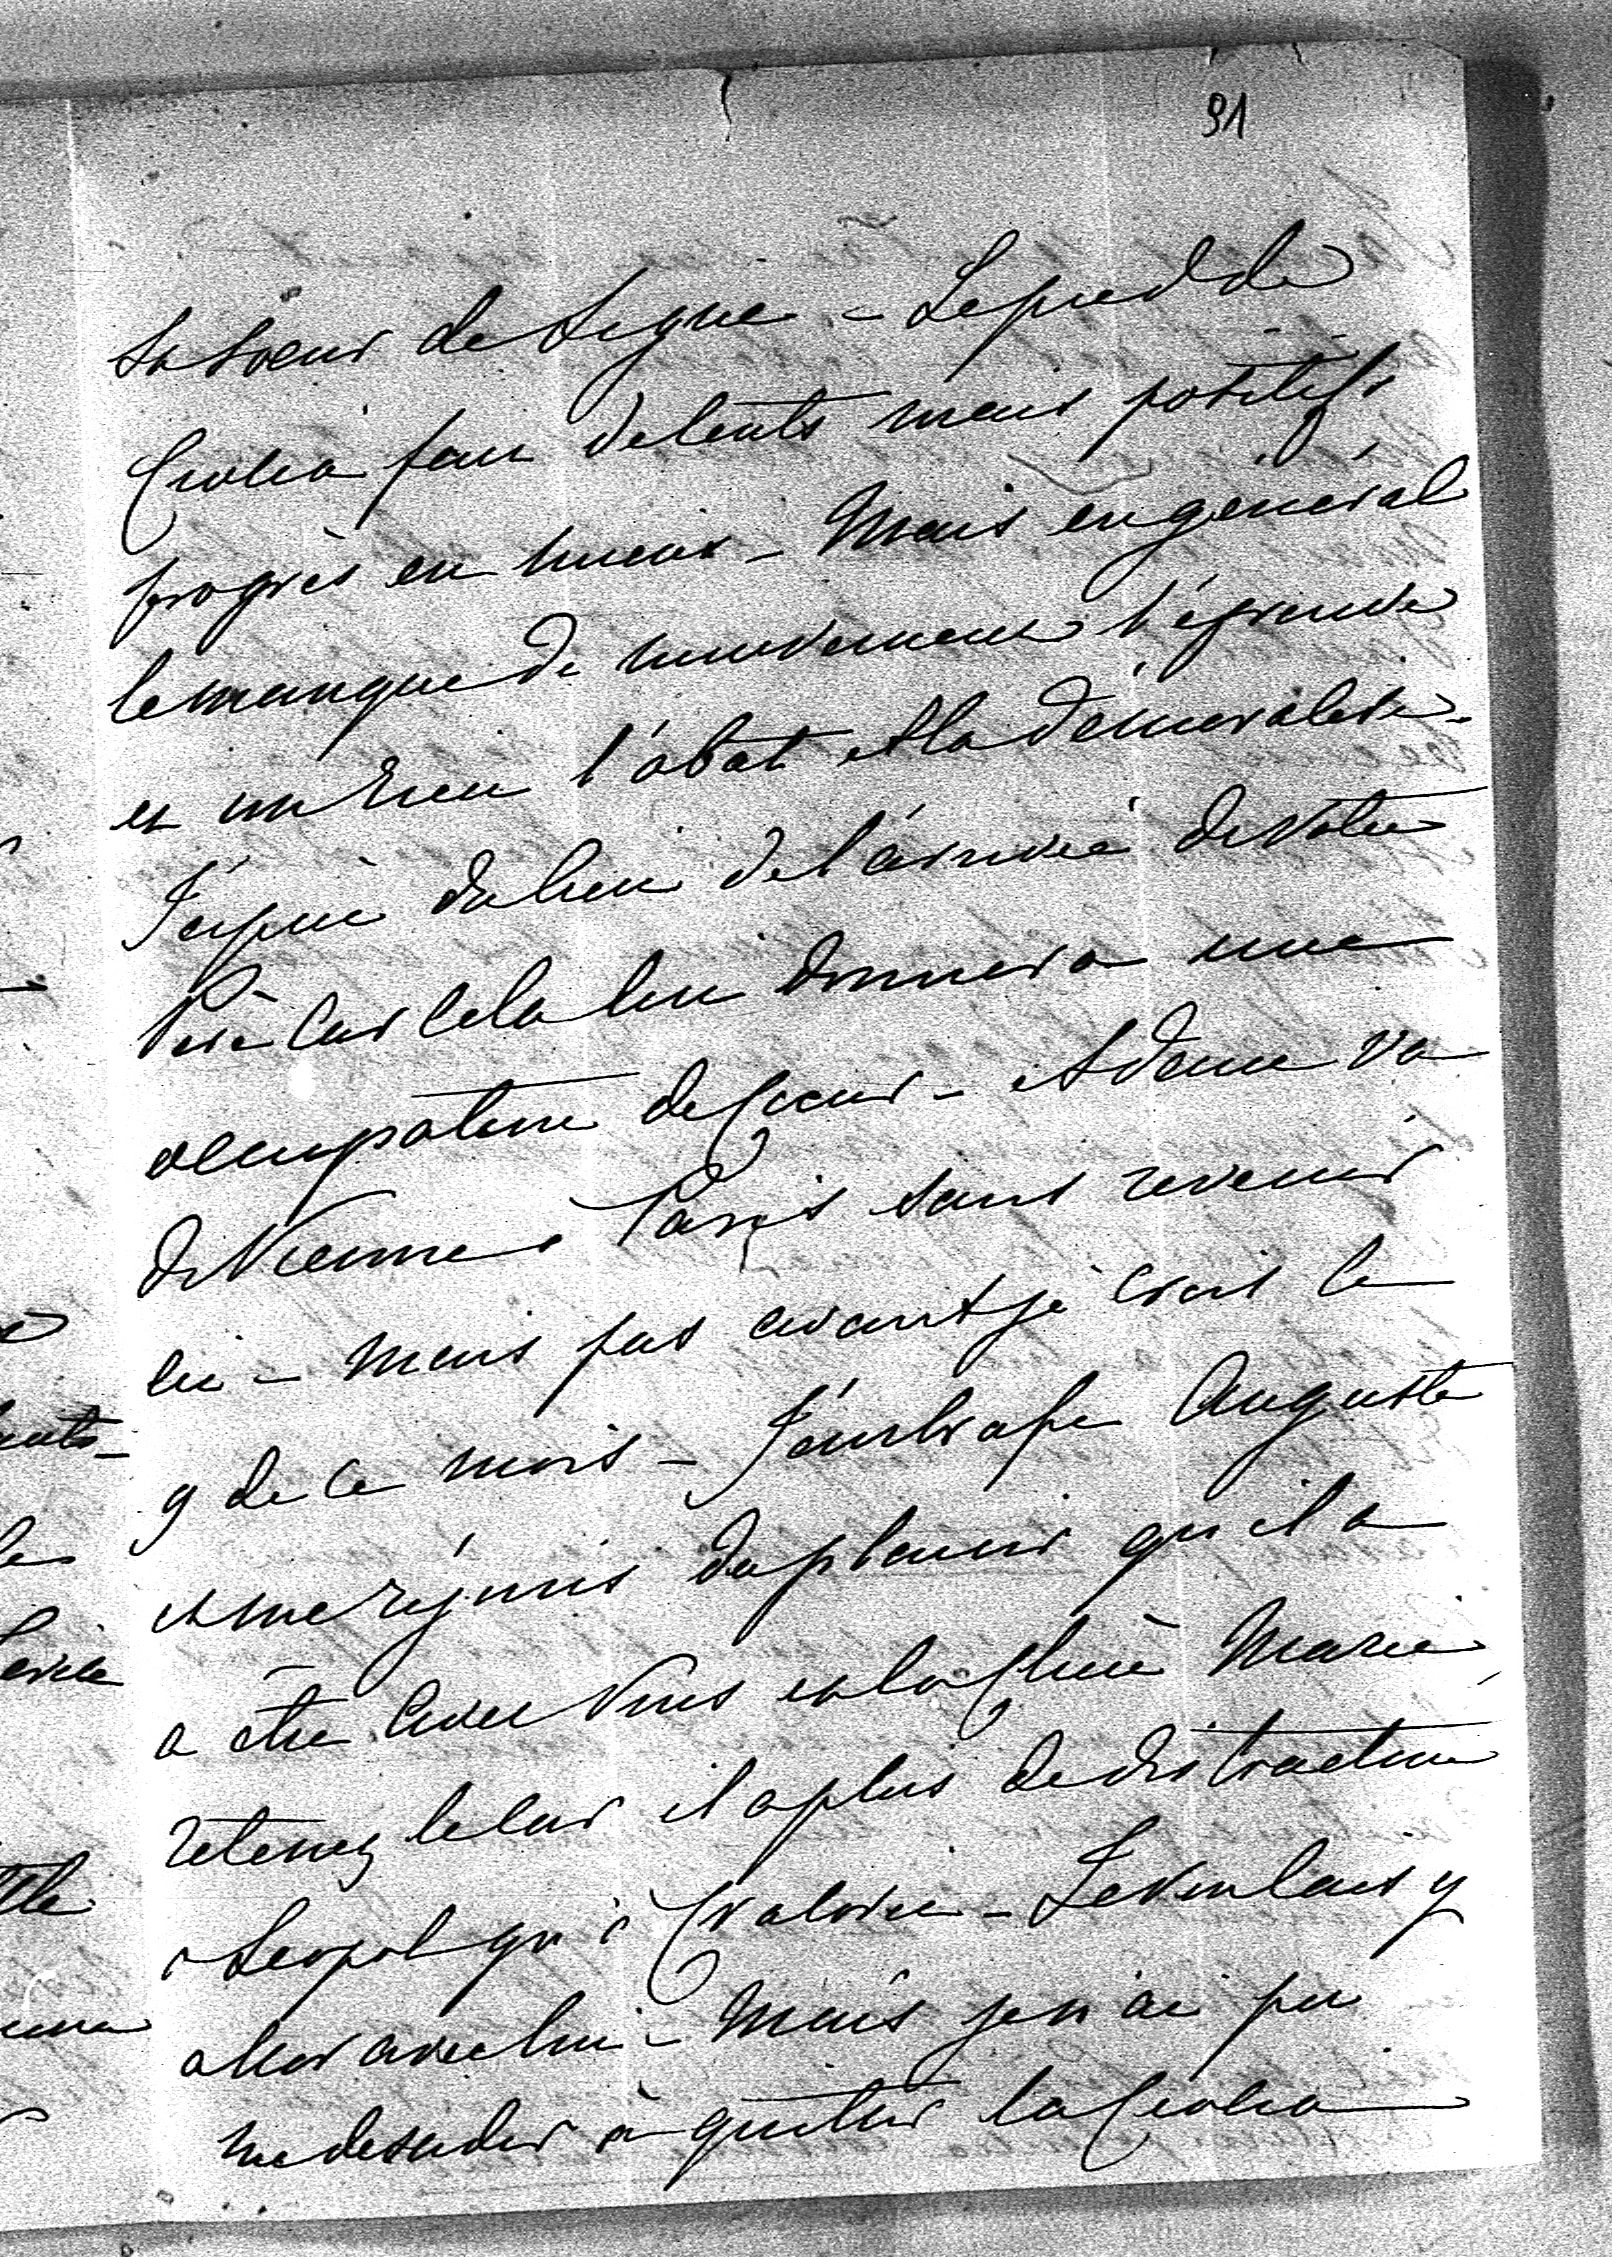 91
sa soeur de Ligne - Le pied de
Ciolia fait de lents mais positifs
progrès en mieux - Mais en général
le manque de mouvement l'éprouve
et un rien l'abat et la démoralise.
J'espère du bien de l'arrivée de votre
Père car cela lui donnera une
occupation de Coeur - Adam va
de Vienne a Paris sans revenir
ici - Mais pas avant je crois le
9 de ce mois - J'embrasse Auguste
et me réjouis du plaisir qu'il a
a être avec Vous et la Chère Marie
retenez le car il a plus de distraction
a Leopol qu'à Cracovie - Je voulais y
aller avec lui - Mais je n'ai pu
me decider à quitter la Ciolia